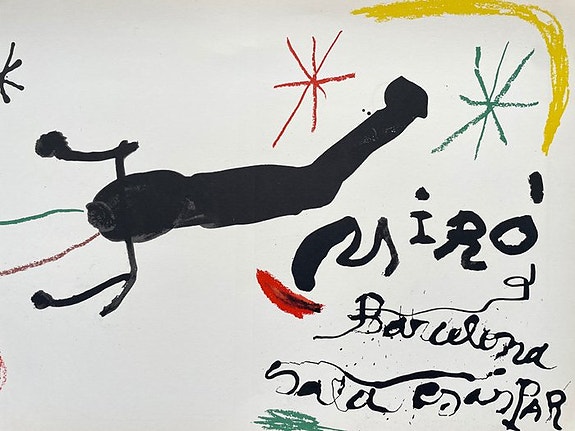 MIRÓ
Barcelona
Sala Gaspar